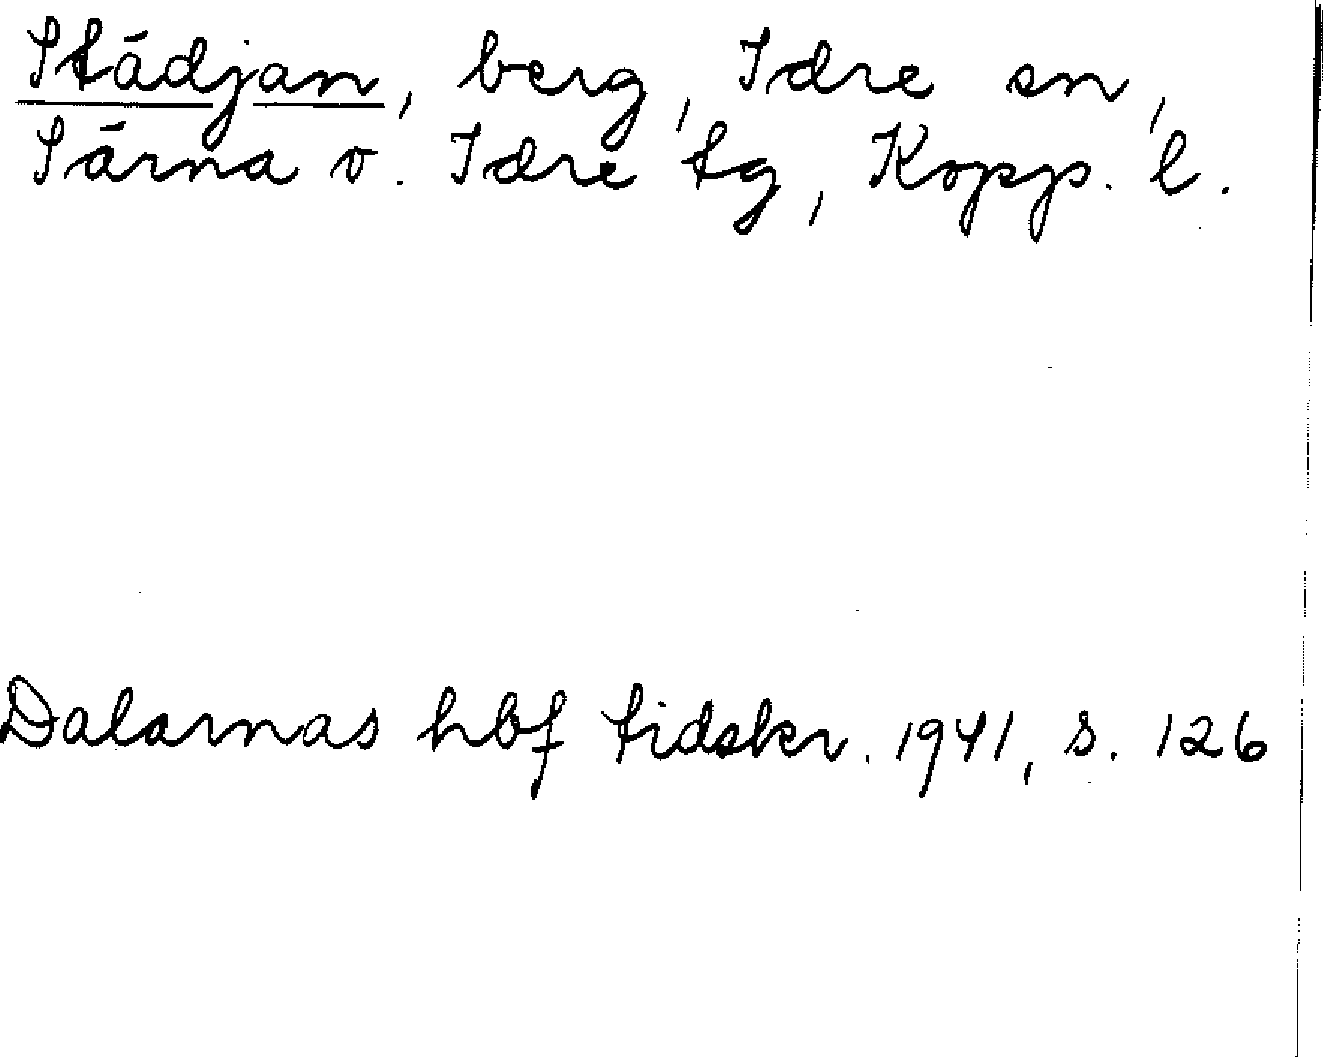 Städjan, berg, Idre sn,
Särna o. Idre tg, Kopp. l.
Dalarnas hbf tidskr. 1941, s. 126